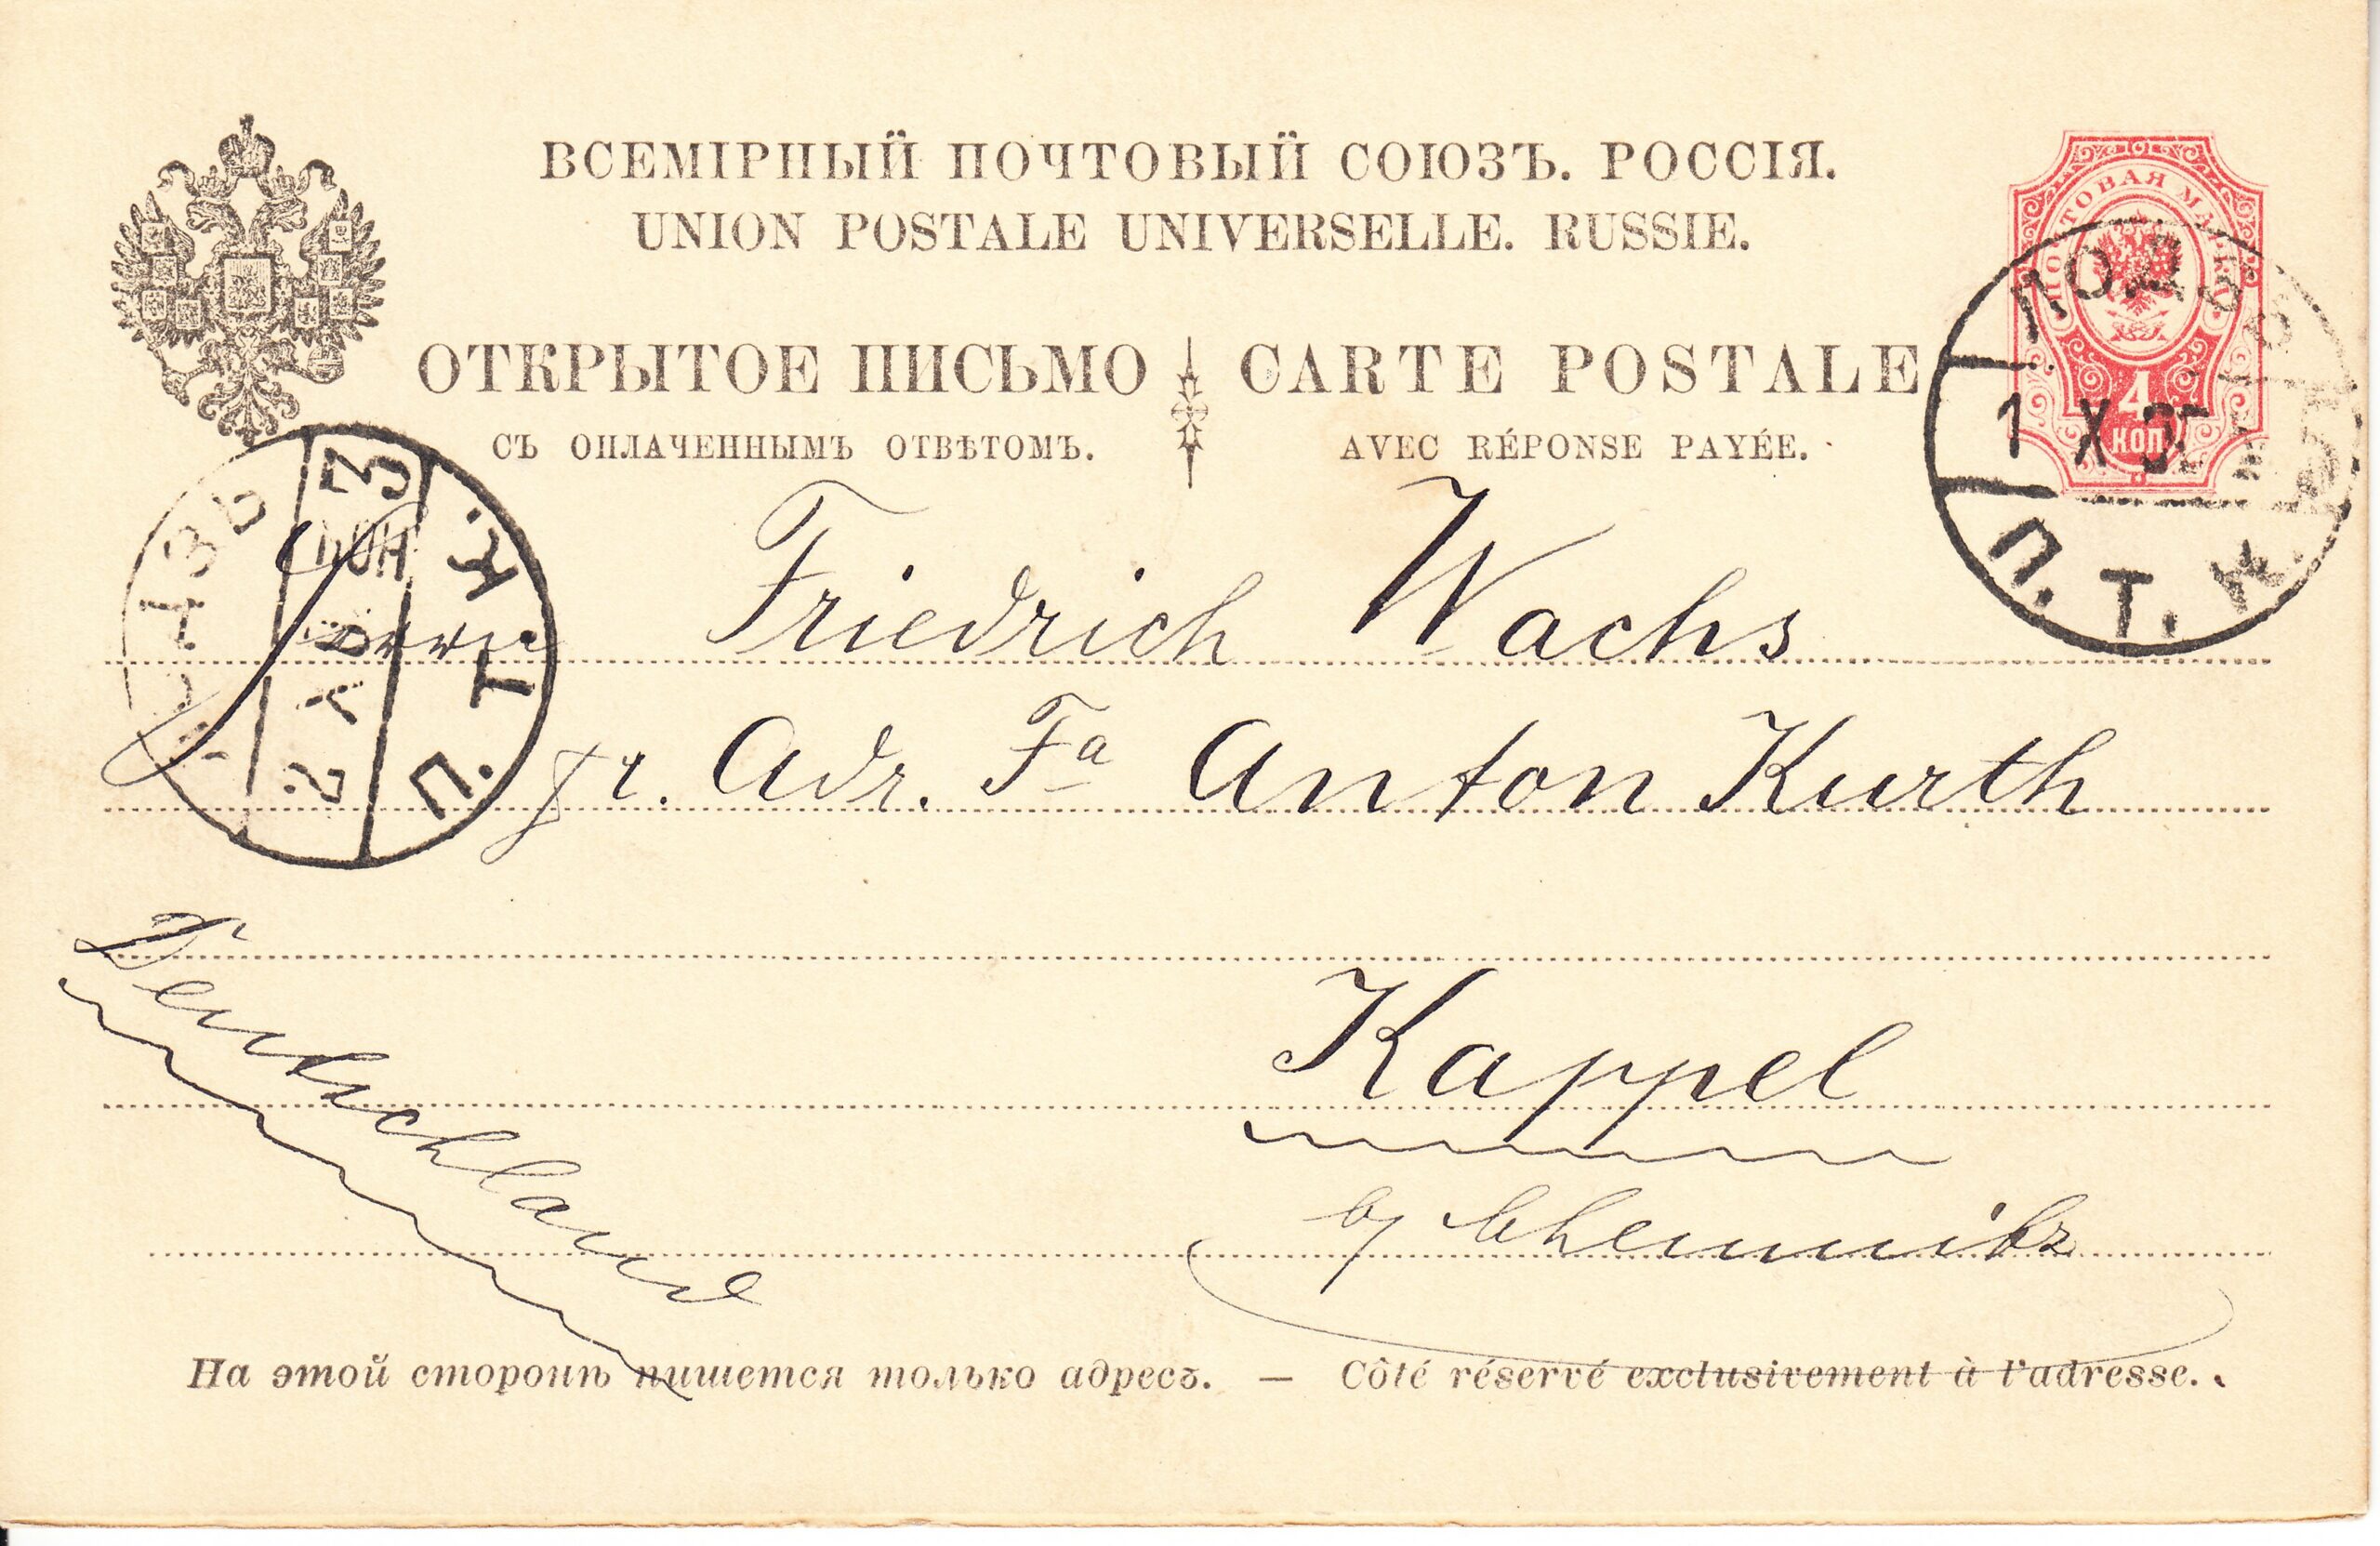 ВСЕМІРНЫЙ ПОЧТОВЫЙ СОЮЗЪ. РОССІЯ.
UNION POSTALE UNIVERSELLE. RUSSIE.
ПОЧТОВАЯ МАРКА
4
КОП
ОТКРЫТОЕ ПИСЬМО
СЪ ОПЛАЧЕННЫМЪ ОТВѢТОМЪ.
CARTE POSTALE
AVEC RÉPONSE PAYÉE.
ЛОДЗЬ
1 X
П. Т. К.
П. Т. К.
Friedrich Wachs
pr. Adr. Fa Anton Kurth
Kappel
b/ Chemnitz
Deutschland
На этой сторонѣ пишется только адресъ. — Côté réservé exclusivement à l'adresse.